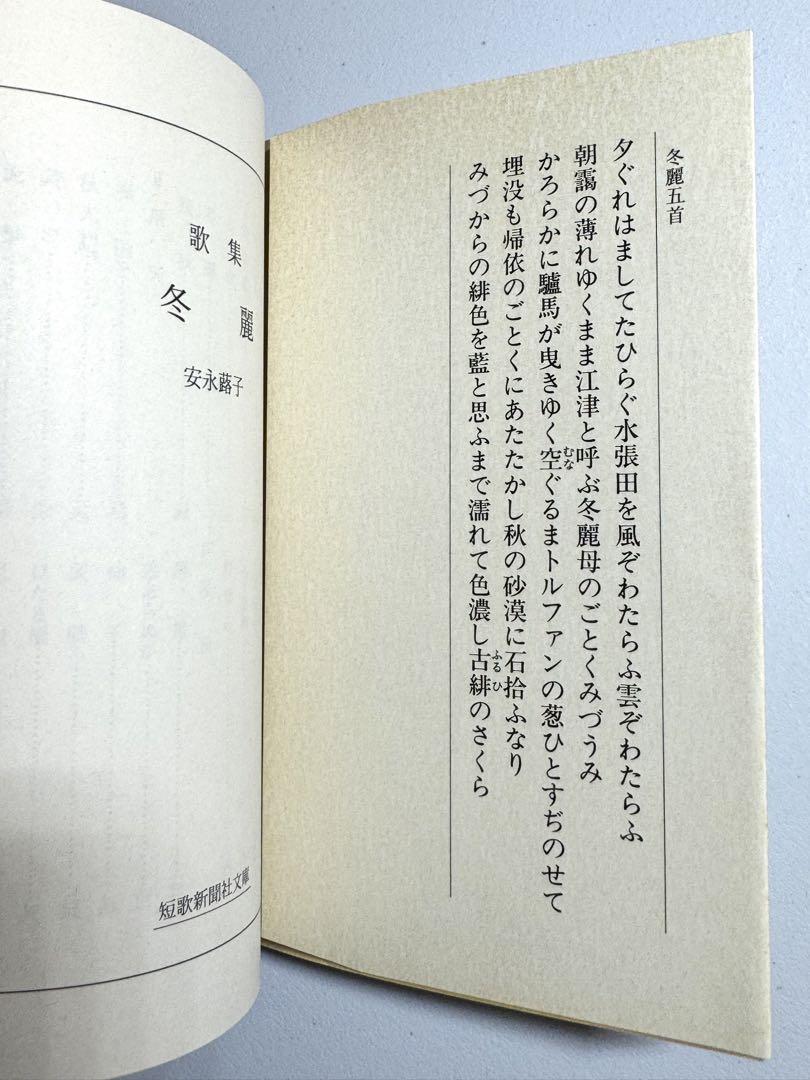 冬麗五首
夕ぐれはましてたひらぐ水張田を風ぞわたらふ雲ぞわたらふ
朝靄の薄れゆくまま江津と呼ぶ冬麗母のごとくみづうみ
かろらかに驢馬が曳きゆく空ぐるまトルファンの葱ひとすぢのせて
むな
埋没も帰依のごとくにあたたかし秋の砂漠に石拾ふなり
みづからの緋色を藍と思ふまで濡れて色濃し古緋のさくら
ふるひ
歌集
冬麗
安永蕗子
短歌新聞社文庫